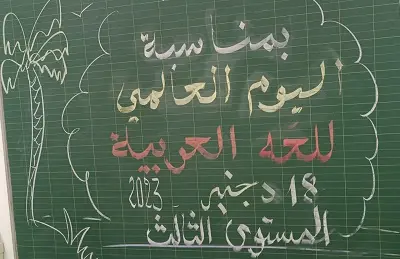 بمناسبة
اليوم العالمي
للغة العربية
18 دجنبر 2023
المستوى الثالث